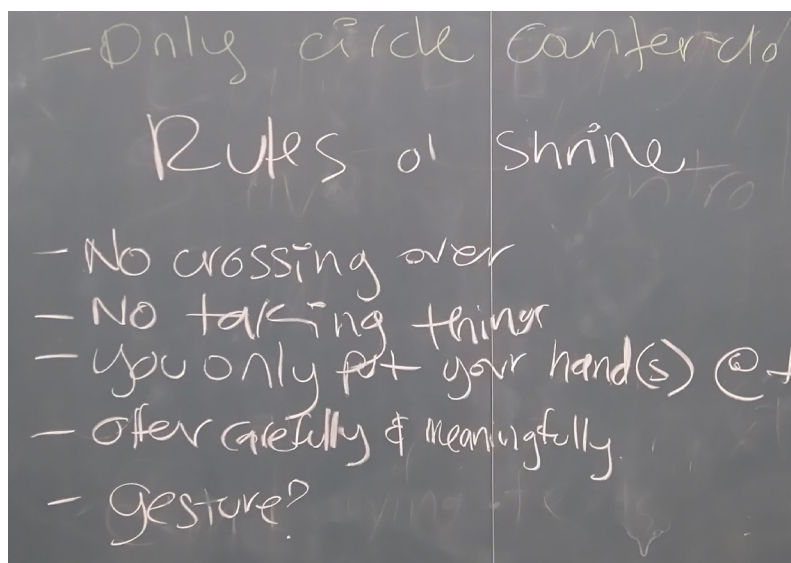 - Only circle counter-clo
Rules o' Shrine
- No crossing over
- No taking things
- you only put your hand(s) @
- offer carefully & meaningfully.
- gesture?